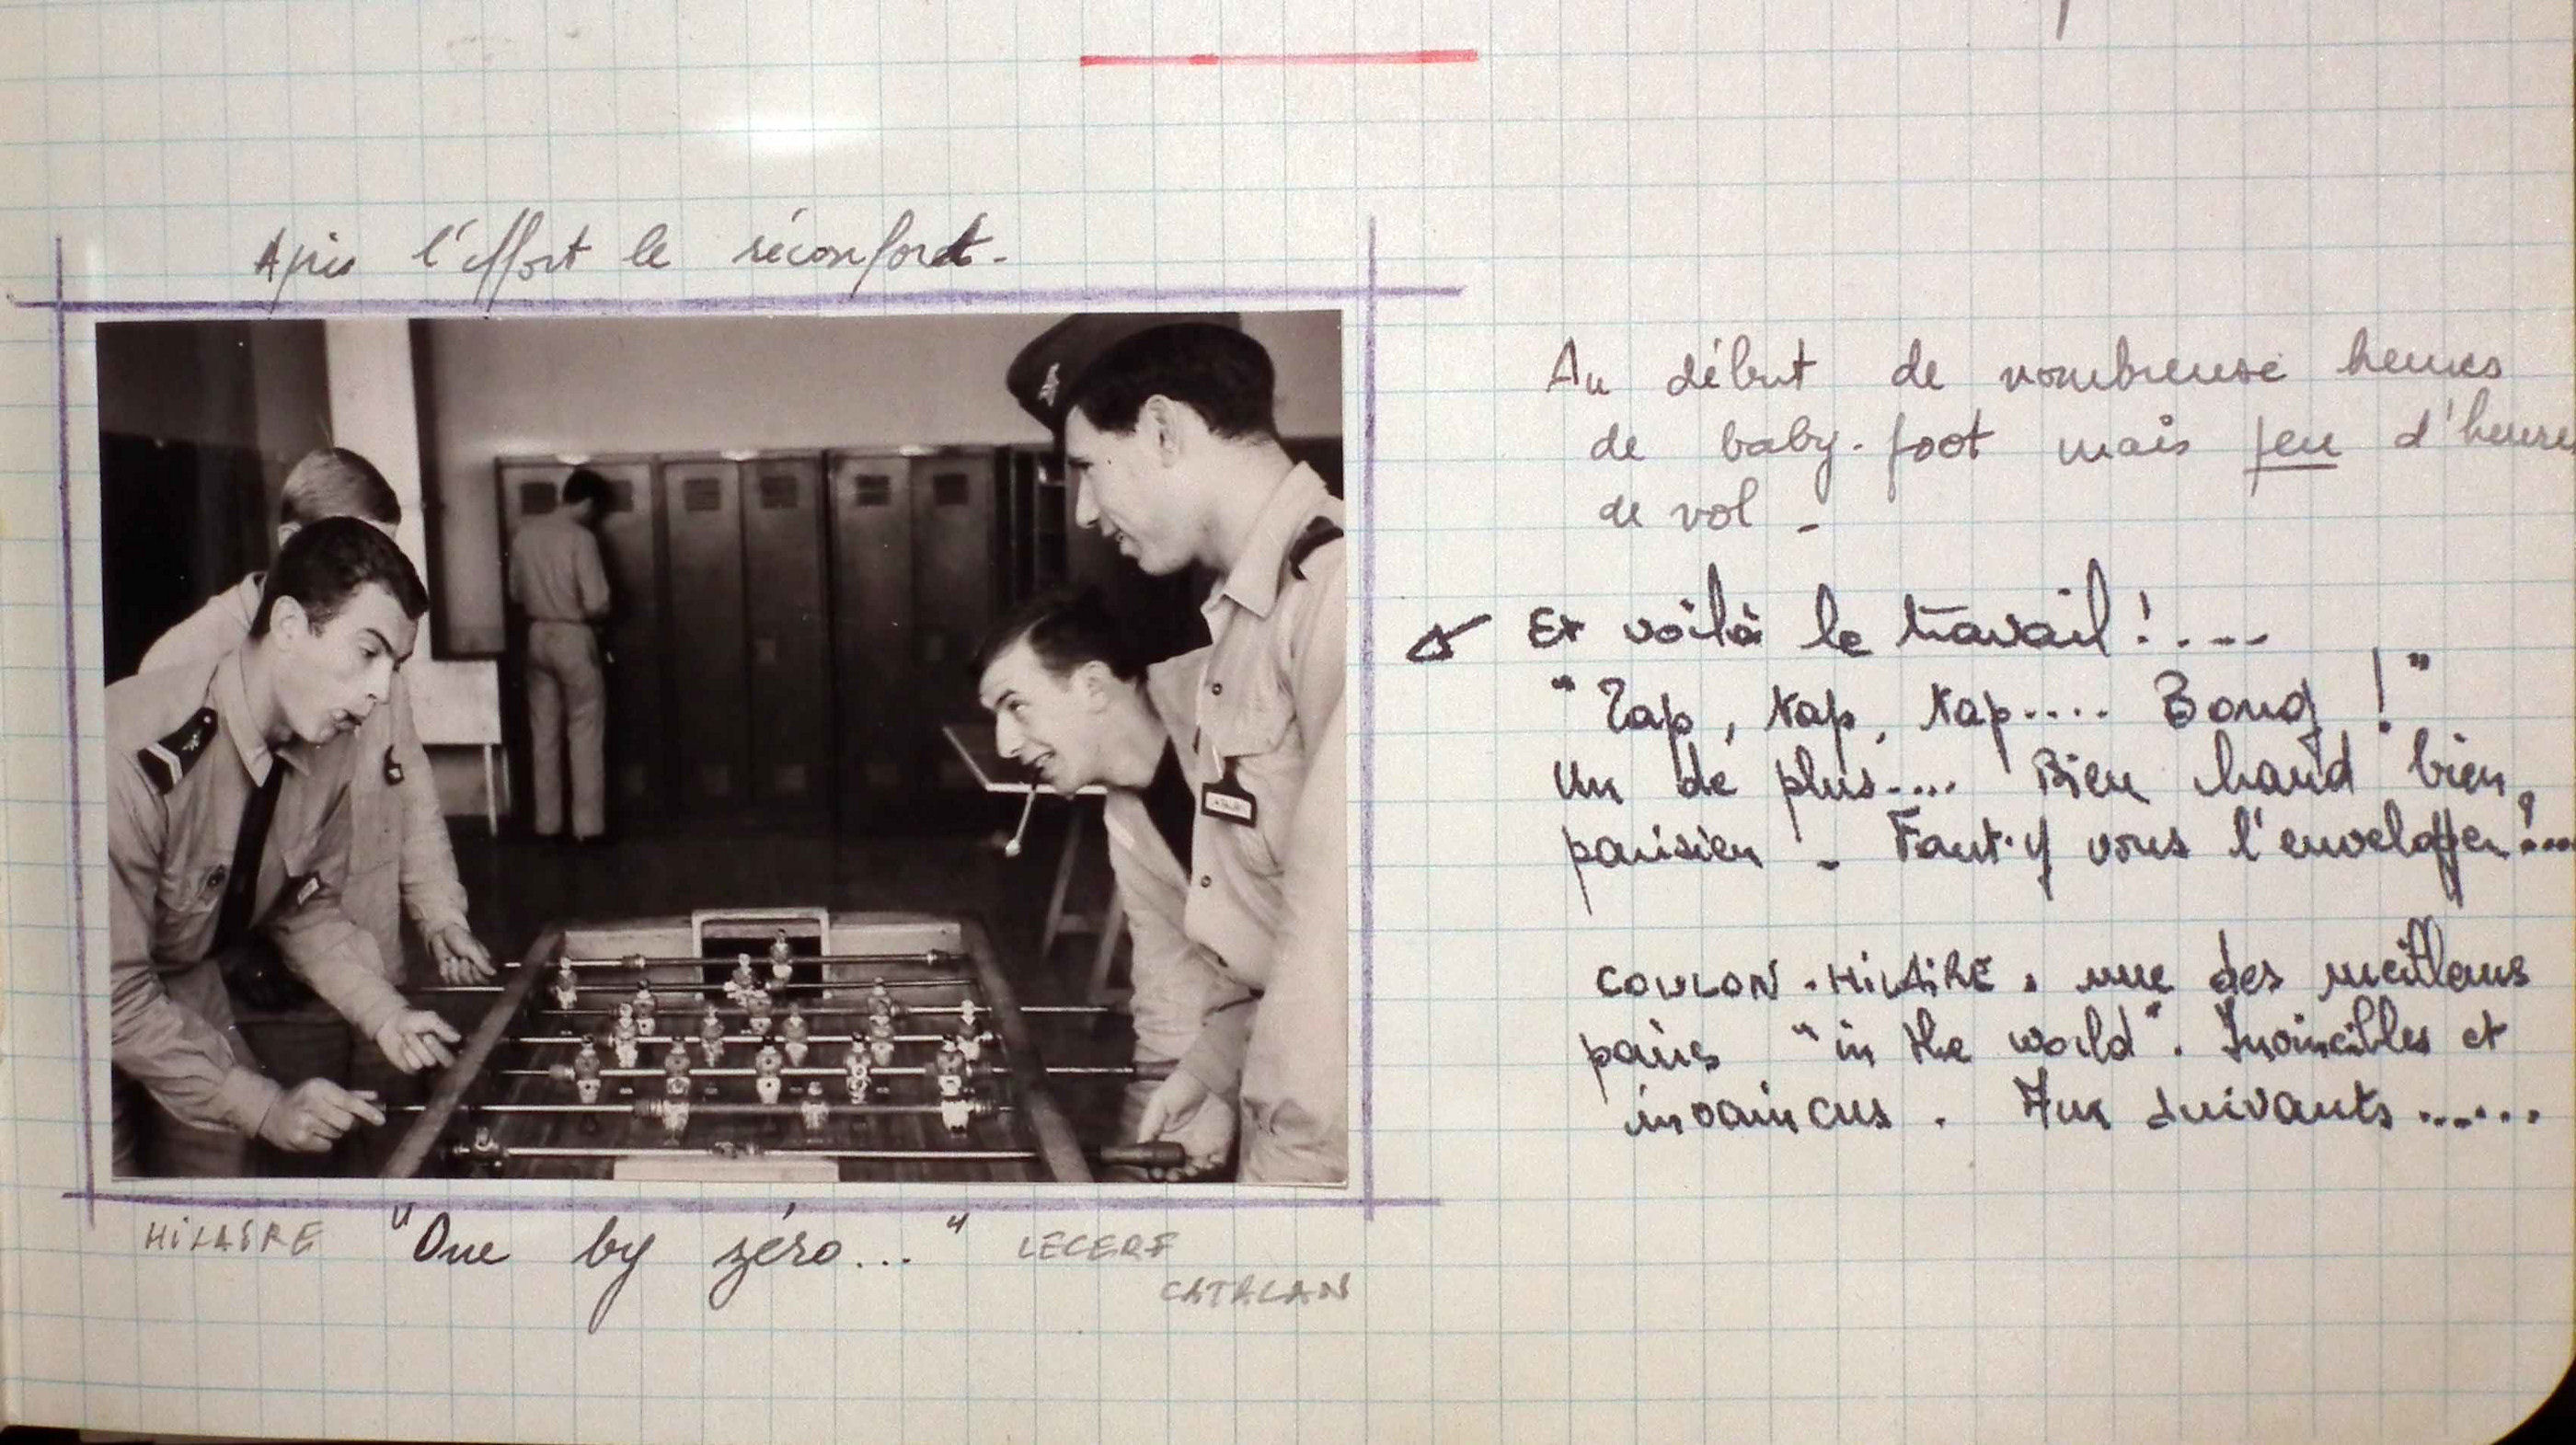 Après l'effort le réconfort.
Au début de nombreuse heures
de baby-foot mais peu d'heures
de vol -
Et voilà le travail ! ....
"Tap, tap, tap.... Bong !"
Un de plus.... Bien chaud bien
parisien - Faut-y vous l'envelopper ?...
COULON - HILAIRE. une des meilleurs
pairs "in the world". Invincibles et
invaincus. Aux suivants......
HILAIRE "One by zéro..." LECERF
CATALAN